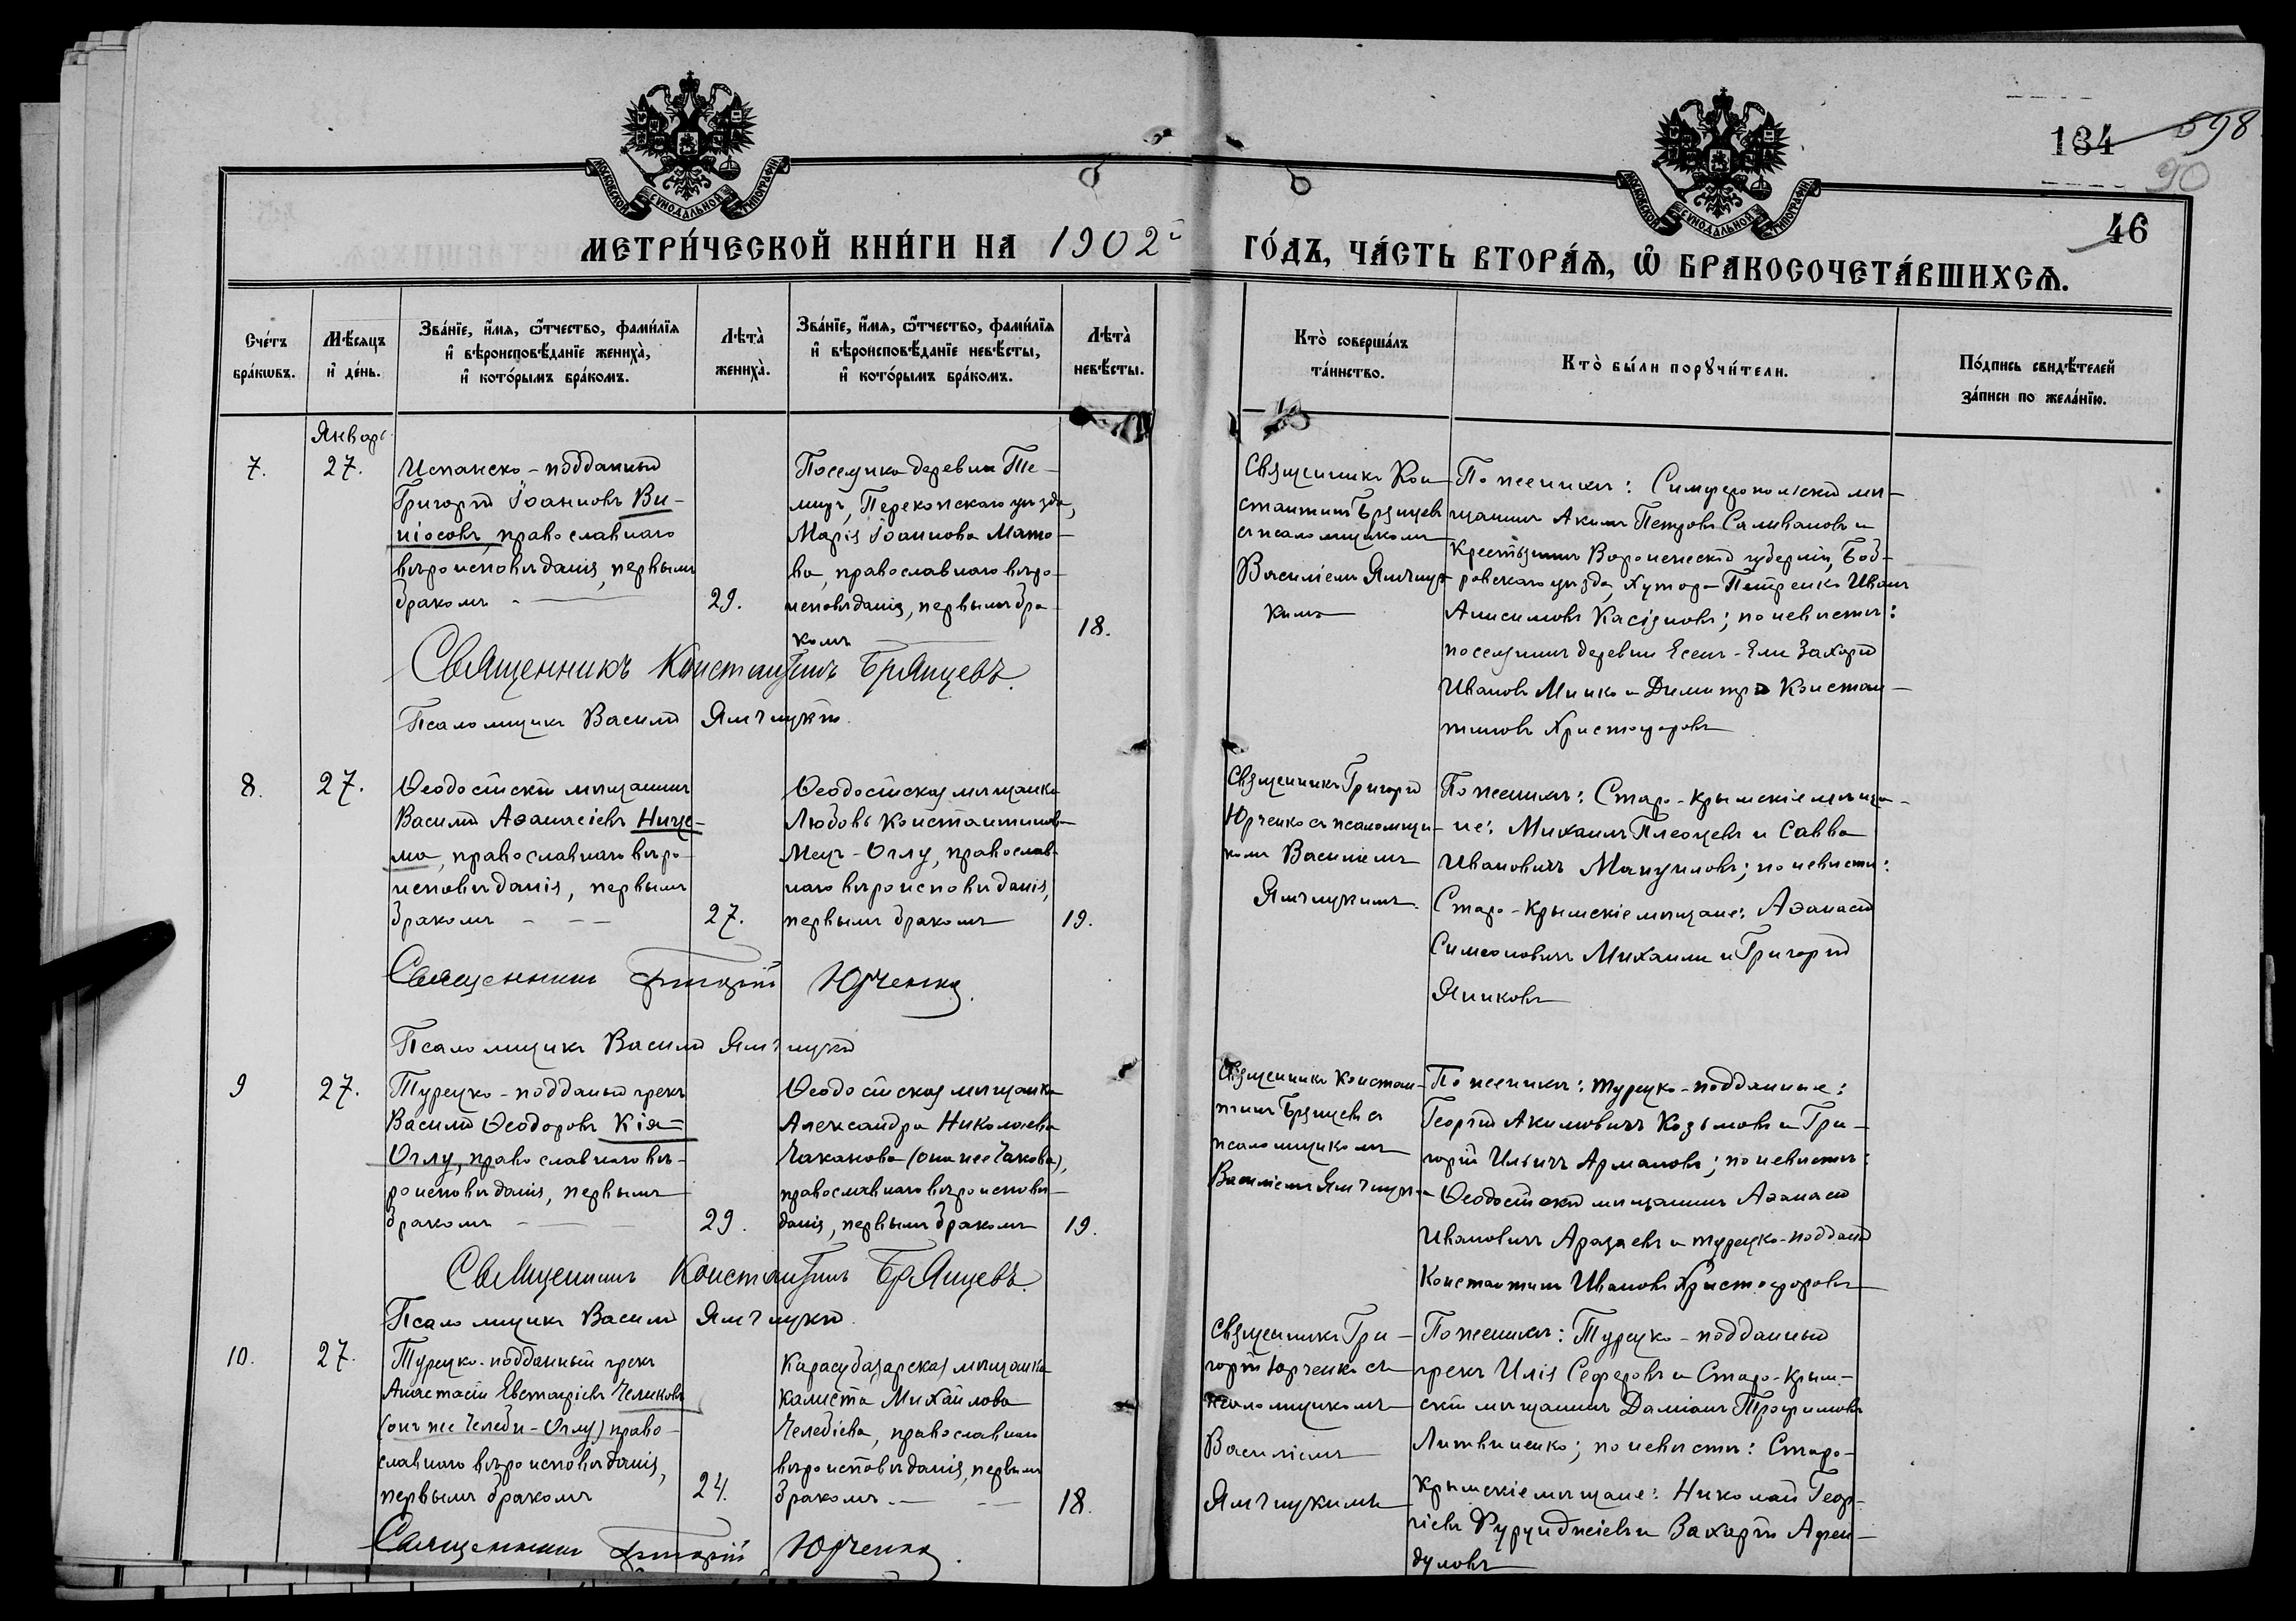 134 598
90
46
МОСКОВСКОЙ СѴНОДАЛЬНОЙ ТИПОГРАФІИ
МОСКОВСКОЙ СѴНОДАЛЬНОЙ ТИПОГРАФІИ
МЕТРИ́ЧЕСКОЙ КНИ́ГИ НА 1902й ГО́ДЪ, ЧА́СТЬ ВТОРА́Ѧ, Ѽ БРАКОСОЧЕТА́ВШИХСѦ.
Сче́тъ
бра́кѡвъ.
Мѣ́сяцъ
и҆ де́нь.
Зва́нїе, и҆́мя, ѻ҆́тчество, фами́лїя
и҆ вѣроисповѣ́данїе жениха̀,
и҆ кото́рымъ бра́комъ.
Лѣта̀
жениха̀.
Зва́нїе, и҆́мя, ѻ҆́тчество, фами́лїя
и҆ вѣроисповѣ́данїе невѣ́сты,
и҆ кото́рымъ бра́комъ.
Лѣта̀
невѣ́сты.
Кто̀ соверша́лъ
та́инство.
Кто̀ бы́ли порꙋчи́тели.
По́дпись свидѣ́телей
за́писи по жела́нїю.
Январь
7.
27.
Испанско-подданный
Григорій Іоанновъ Ви-
ніосовъ, православнаго
вѣроисповѣданія, первымъ
бракомъ
29.
Поселянка деревни Те-
миръ, Перекопскаго уѣзда,
Марія Іоаннова Мато-
ва, православнаго вѣро-
исповѣданія, первымъ бра-
комъ
18.
Священникъ Кон-
стантинъ Брянцевъ
съ псаломщикомъ
Василіемъ Ямчиц-
кимъ
По женихѣ: Симферопольскій мѣ-
щанинъ Акимъ Петровъ Саливановъ и
крестьянинъ Воронежской губерніи, Боб-
ровскаго уѣзда, хутора Петренко Иванъ
Анисимовъ Касьяновъ; по невѣстѣ:
поселянинъ деревни Есенъ-Ели Захарій
Ивановъ Минко и Димитрій Констан-
тиновъ Христофоровъ
Священникъ Константинъ Брянцевъ.
Псаломщикъ Василій Ямчицкій.
8.
27.
Ѳеодосійскій мѣщанинъ
Василій Аѳанасіевъ Нице-
ма, православнаго вѣро-
исповѣданія, первымъ
бракомъ
27.
Ѳеодосійская мѣщанка
Любовь Константинова
Мецъ-Оглу, православ-
наго вѣроисповѣданія,
первымъ бракомъ
19.
Священникъ Григорій
Юрченко съ псаломщи-
комъ Василіемъ
Ямчицкимъ.
По женихѣ: Старо-Крымскіе мѣща-
не: Михаилъ Плеоцевъ и Савва
Ивановичъ Мануиловъ; по невѣстѣ:
Старо-Крымскіе мѣщане: Аѳанасій
Симеоновичъ Михаили и Григорій
Янниковъ
Священникъ Григорій Юрченко.
Псаломщикъ Василій Ямчицкій
9
27.
Турецко-подданый грекъ
Василій Ѳеодоровъ Кія-
Оглу, православнаго вѣ-
роисповѣданія, первымъ
бракомъ
29.
Ѳеодосійская мѣщанка
Александра Николаева
Чаканова (она же Чакова),
православнаго вѣроисповѣ-
данія, первымъ бракомъ
19.
Священникъ Констан-
тинъ Брянцевъ съ
псаломщикомъ
Василіемъ Ямчицк-
По женихѣ: турецко-подданные:
Георгій Акимовичъ Козьмовъ и Гри-
горій Ильичъ Армаовъ; по невѣстѣ:
Ѳеодосійскій мѣщанинъ Аѳанасій
Ивановичъ Аразаевъ и турецко-подданый
Константинъ Ивановъ Христофоровъ
Священникъ Константинъ Брянцевъ.
Псаломщикъ Василій Ямчицкій.
10.
27.
Турецко-подданный грекъ
Анастасій Евстафіевъ Челиковъ
(онъ же Челеби-Оглу) право-
славнаго вѣроисповѣданія,
первымъ бракомъ
24.
Карасубазарская мѣщанка
Калиста Михайлова
Челебіева, православнаго
вѣроисповѣданія, первымъ
бракомъ.
18.
Священникъ Гри-
горій Юрченко съ
псаломщикомъ
Василіемъ
Ямчицкимъ
По женихѣ: Турецко-подданный
грекъ Илія Сеферовъ и Старо-Крым-
скій мѣщанинъ Даміанъ Трофимовъ
Литвиненко; по невѣстѣ: Старо-
Крымскіе мѣщане: Николай Геор-
гіевъ Фурунджіевъ и Захарій Афен-
дуловъ
Священникъ Григорій Юрченко.